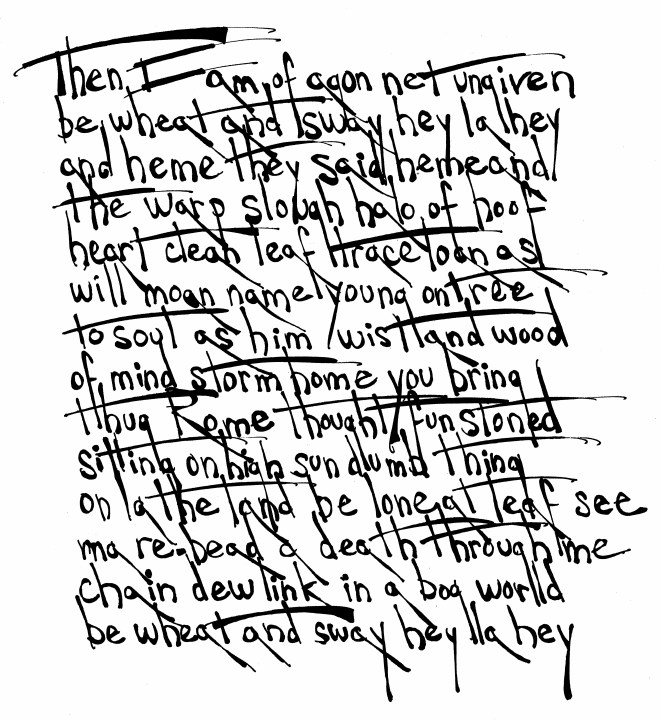 Then, I am, of agon net ungiven
be, wheat and sway, hey la hey
and heme they said, heme and
the warp slough halo of hoof
heart clean leaf trace loan as
will moan name young on tree
to soul as him wist land wood
of mind storm home you bring
thug Rome thought funstoned
sitting on high sun dumb thing
on la the and be lone at leaf see
ma re-bead a death through me
chain dew link in a bog world
be wheat and sway hey lla hey